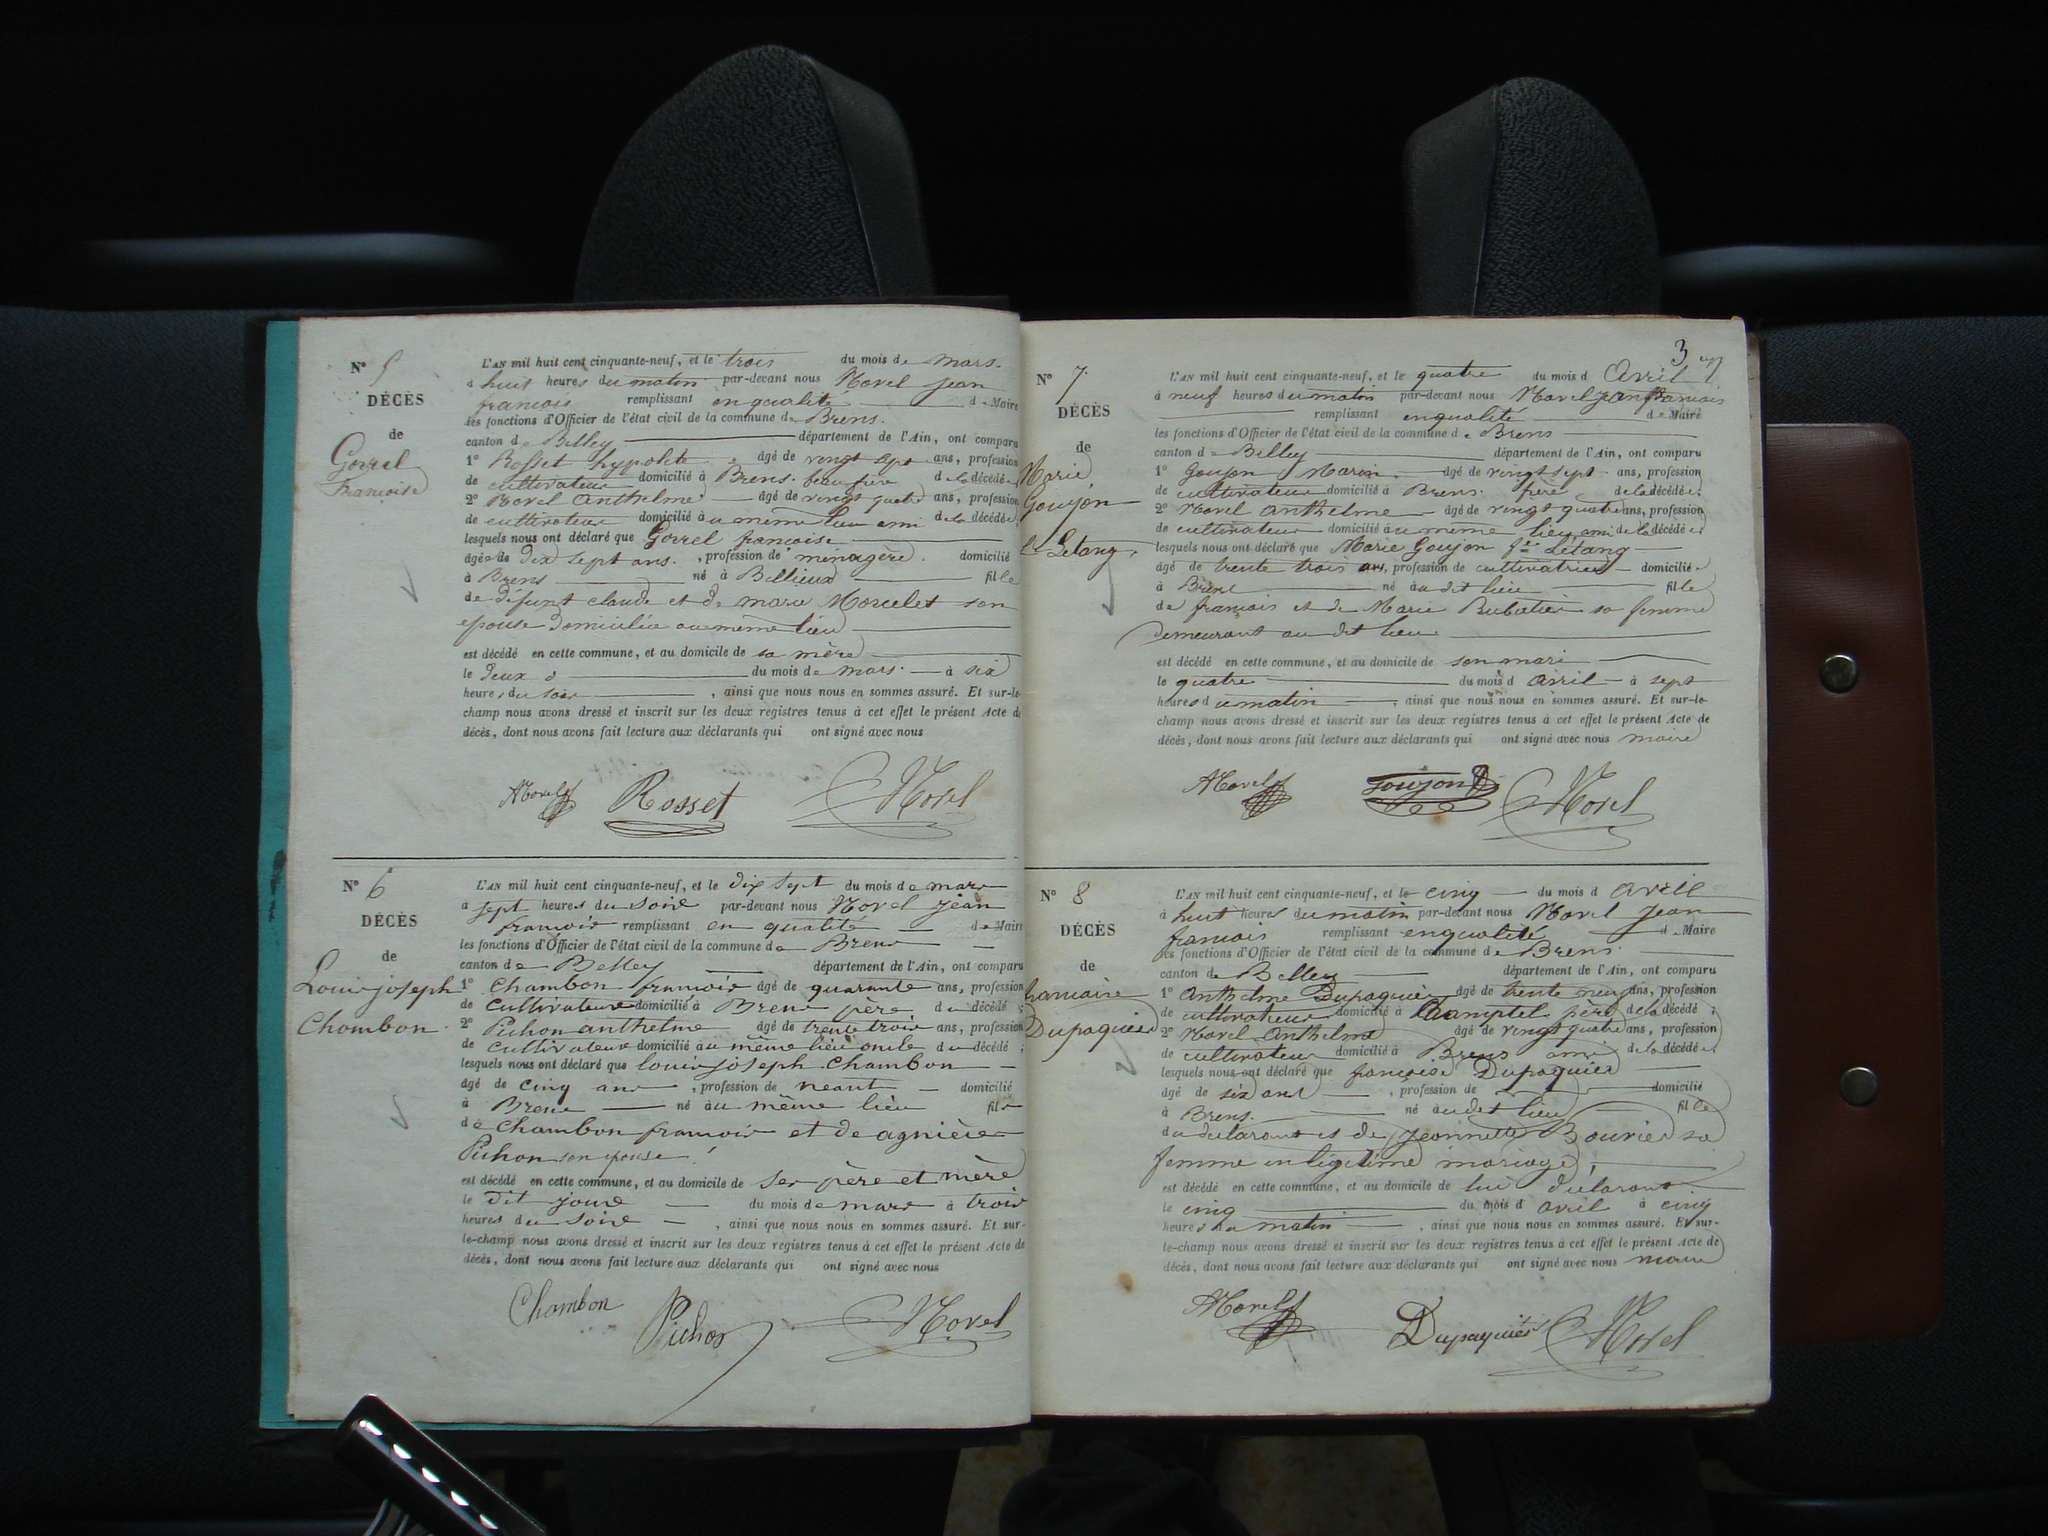 N° 5
DÉCÈS
de
Gorrel
Françoise
L'AN mil huit cent cinquante-neuf, et le trois du mois de mars.
à huit heures du matin par-devant nous Morel jean
francois remplissant en qualité de Maire
les fonctions d'Officier de l'état civil de la commune de Brens.
canton de Belley département de l'Ain, ont comparu
1° Rosset hypolite âgé de vingt sept ans, profession
de cultivateur domicilié à Brens. beau frère de la décédée
2° Morel Anthelme âgé de vingt quatre ans, profession
de cultivateur domicilié au même lieu ami de la décédée
lesquels nous ont déclaré que Gorrel francoise
âgée de dix sept ans. , profession de ménagère. domicilié
à Brens né à Billieux fille
de défunt claude et de marie Morcelet son
epouse domiciliée au même lieu
est décédé en cette commune, et au domicile de sa mère
le deux du mois de mars. à six
heures du soir , ainsi que nous nous en sommes assuré. Et sur-le-
champ nous avons dressé et inscrit sur les deux registres tenus à cet effet le présent Acte de
décès, dont nous avons fait lecture aux déclarants qui ont signé avec nous
AMorel Rosset Morel
N° 6
DÉCÈS
de
Louis joseph
Chambon.
L'AN mil huit cent cinquante-neuf, et le dix sept du mois de mars
à sept heures du soire par-devant nous Morel jean
francois remplissant en qualité de Maire
les fonctions d'Officier de l'état civil de la commune de Brens
canton de Belley département de l'Ain, ont comparu
1° Chambon francois âgé de quarante ans, profession
de cultivateur domicilié à Brens père du décédé ;
2° Pichon anthelme âgé de trente trois ans, profession
de cultivateur domicilié au même lieu oncle du décédé ;
lesquels nous ont déclaré que louis joseph Chambon
âgé de cinq ans , profession de neant domicilié
à Brens né au même lieu fils
de Chambon francois et de agnièse
Pichon son epouse
est décédé en cette commune, et au domicile de ses père et mère
le dit jour du mois de mars à trois
heures du soire , ainsi que nous nous en sommes assuré. Et sur-
le-champ nous avons dressé et inscrit sur les deux registres tenus à cet effet le présent Acte de
décès, dont nous avons fait lecture aux déclarants qui ont signé avec nous
Chambon Pichon Morel
3
N° 7
DÉCÈS
de
Marie
Goujon
Létang
L'AN mil huit cent cinquante-neuf, et le quatre du mois d Avril
à neuf heures du matin par-devant nous Morel jean francois
remplissant en qualité de Maire
les fonctions d'Officier de l'état civil de la commune de Brens
canton de Belley département de l'Ain, ont comparu
1° Goujon Marin âgé de vingt sept ans, profession
de cultivateur domicilié à Brens. frère de la décédée ;
2° Morel Anthelme âgé de vingt quatre ans, profession
de cultivateur domicilié au même lieu ami de la décédée
lesquels nous ont déclaré que Marie Goujon fe Létang
âgé de trente trois ans, profession de cultivatrice domiciliée
à Brens né au dit lieu fille
de françois et de Marie Rubatier sa femme
demeurant au dit lieu
est décédé en cette commune, et au domicile de son mari
le quatre du mois d avril à sept
heures du matin , ainsi que nous nous en sommes assuré. Et sur-le-
champ nous avons dressé et inscrit sur les deux registres tenus à cet effet le présent Acte de
décès, dont nous avons fait lecture aux déclarants qui ont signé avec nous maire
AMorel Goujon Morel
N° 8
DÉCÈS
de
Dupaquier
L'AN mil huit cent cinquante-neuf, et le cinq du mois d avril
à huit heures du matin par-devant nous Morel jean
francois remplissant en qualité de Maire
les fonctions d'Officier de l'état civil de la commune de Brens
canton de Belley département de l'Ain, ont comparu
1° Anthelme Dupaquier âgé de trente neuf ans, profession
de cultivateur domicilié à père de la décédé ;
2° Morel Anthelme âgé de vingt quatre ans, profession
de cultivateur domicilié à Brens ami de la décédée
lesquels nous ont déclaré que françoise Dupaquier
âgé de six ans , profession de domicilié
à Brens. né au dit lieu fille
du declarant et de Jeannette Bouvier sa
femme en légitime mariage,
est décédé en cette commune, et au domicile de lui declarant
le cinq du mois d avril à cinq
heures du matin , ainsi que nous nous en sommes assuré. Et sur-
le-champ nous avons dressé et inscrit sur les deux registres tenus à cet effet le présent Acte de
décès, dont nous avons fait lecture aux déclarants qui ont signé avec nous maire
AMorel Dupaquier Morel